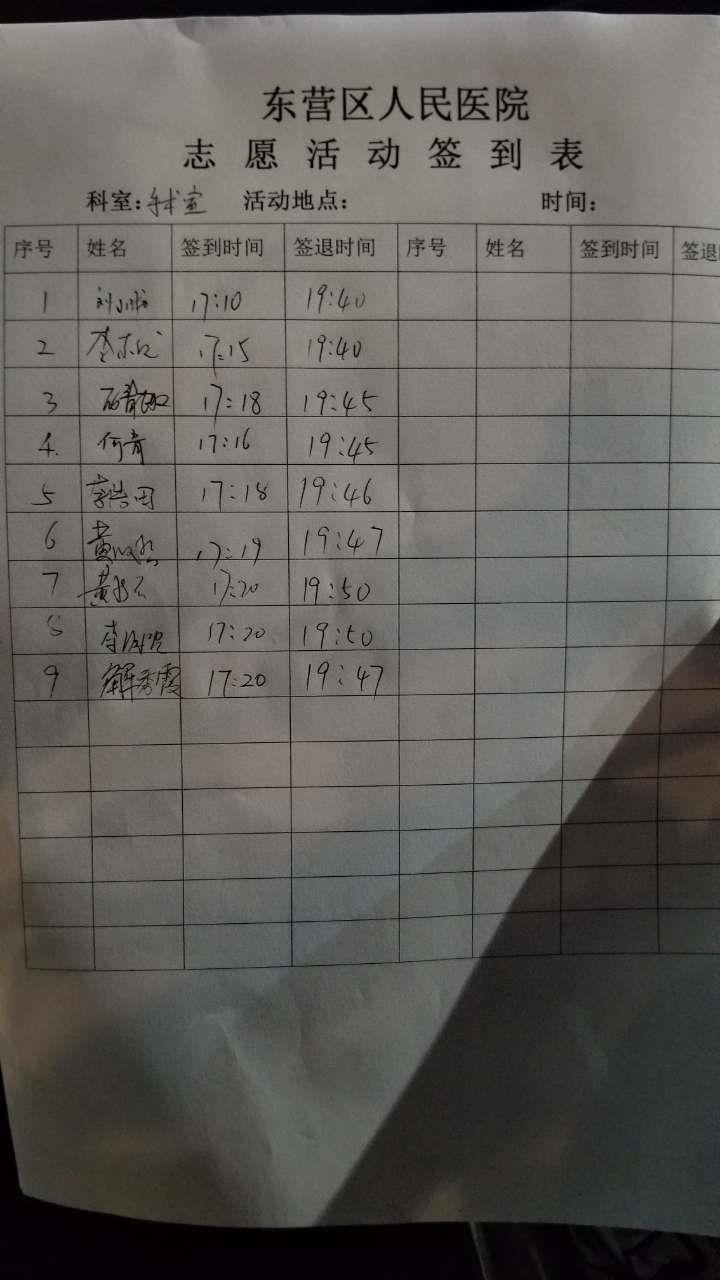 东营区人民医院
志愿活动签到表
科室:手术室 活动地点: 时间:
序号 姓名 签到时间 签退时间 序号 姓名 签到时间 签退
1 17:10 19:40
2 17:15 19:40
3 17:18 19:45
4. 何青 17:16 19:45
5 17:18 19:46
6 17:19 19:47
7 17:20 19:50
8 17:20 19:50
9 解秀霞 17:20 19:47